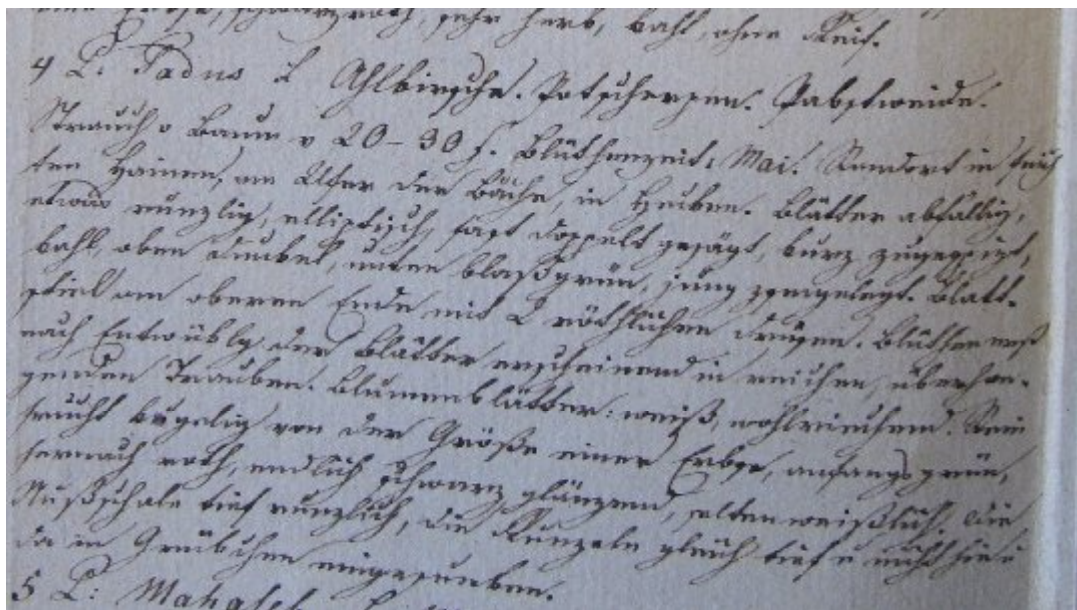 schwarzroth, sehr herb, kahl, ohne Reif.
4 P: Padus L Ahlkirsche. Potscherpen. Pabstweide.
Strauch o Baum v 20-30 f. Blüthenzeit: Mai. Standort in feuch
ten Hainen, am Ufer der Bäche, in Hecken. Blätter abfällig,
etwas runzlig, elliptisch, fast doppelt gesägt, kurz zugespizt,
kahl, oben dunkel, unten blaßgrün, jung zsmgelegt. Blatt-
stiel am oberen Ende mit 2 röthlichen Drüsen. Blüthen erst
nach Entwicklg der Blätter erscheinend in reichen, überhän-
genden Trauben. Blumenblätter: weiß, wohlriechend. Stein
frucht kugelig von der Größe einer Erbse, anfangs grün,
hernach roth, endlich schwarz, glänzend, selten weißlich. Die
Nußschale tief runzlich, die Runzeln gleich tief u nicht hie u
da in Grübchen eingesunken.
5 P: Mahaleb